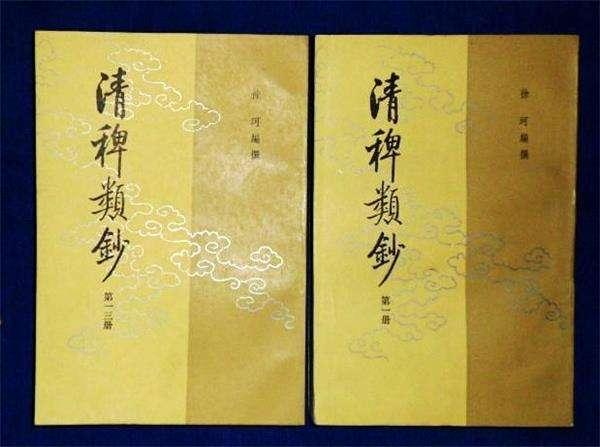 清稗類鈔
第一三册
徐珂編撰
清稗類鈔
第一册
徐珂編撰